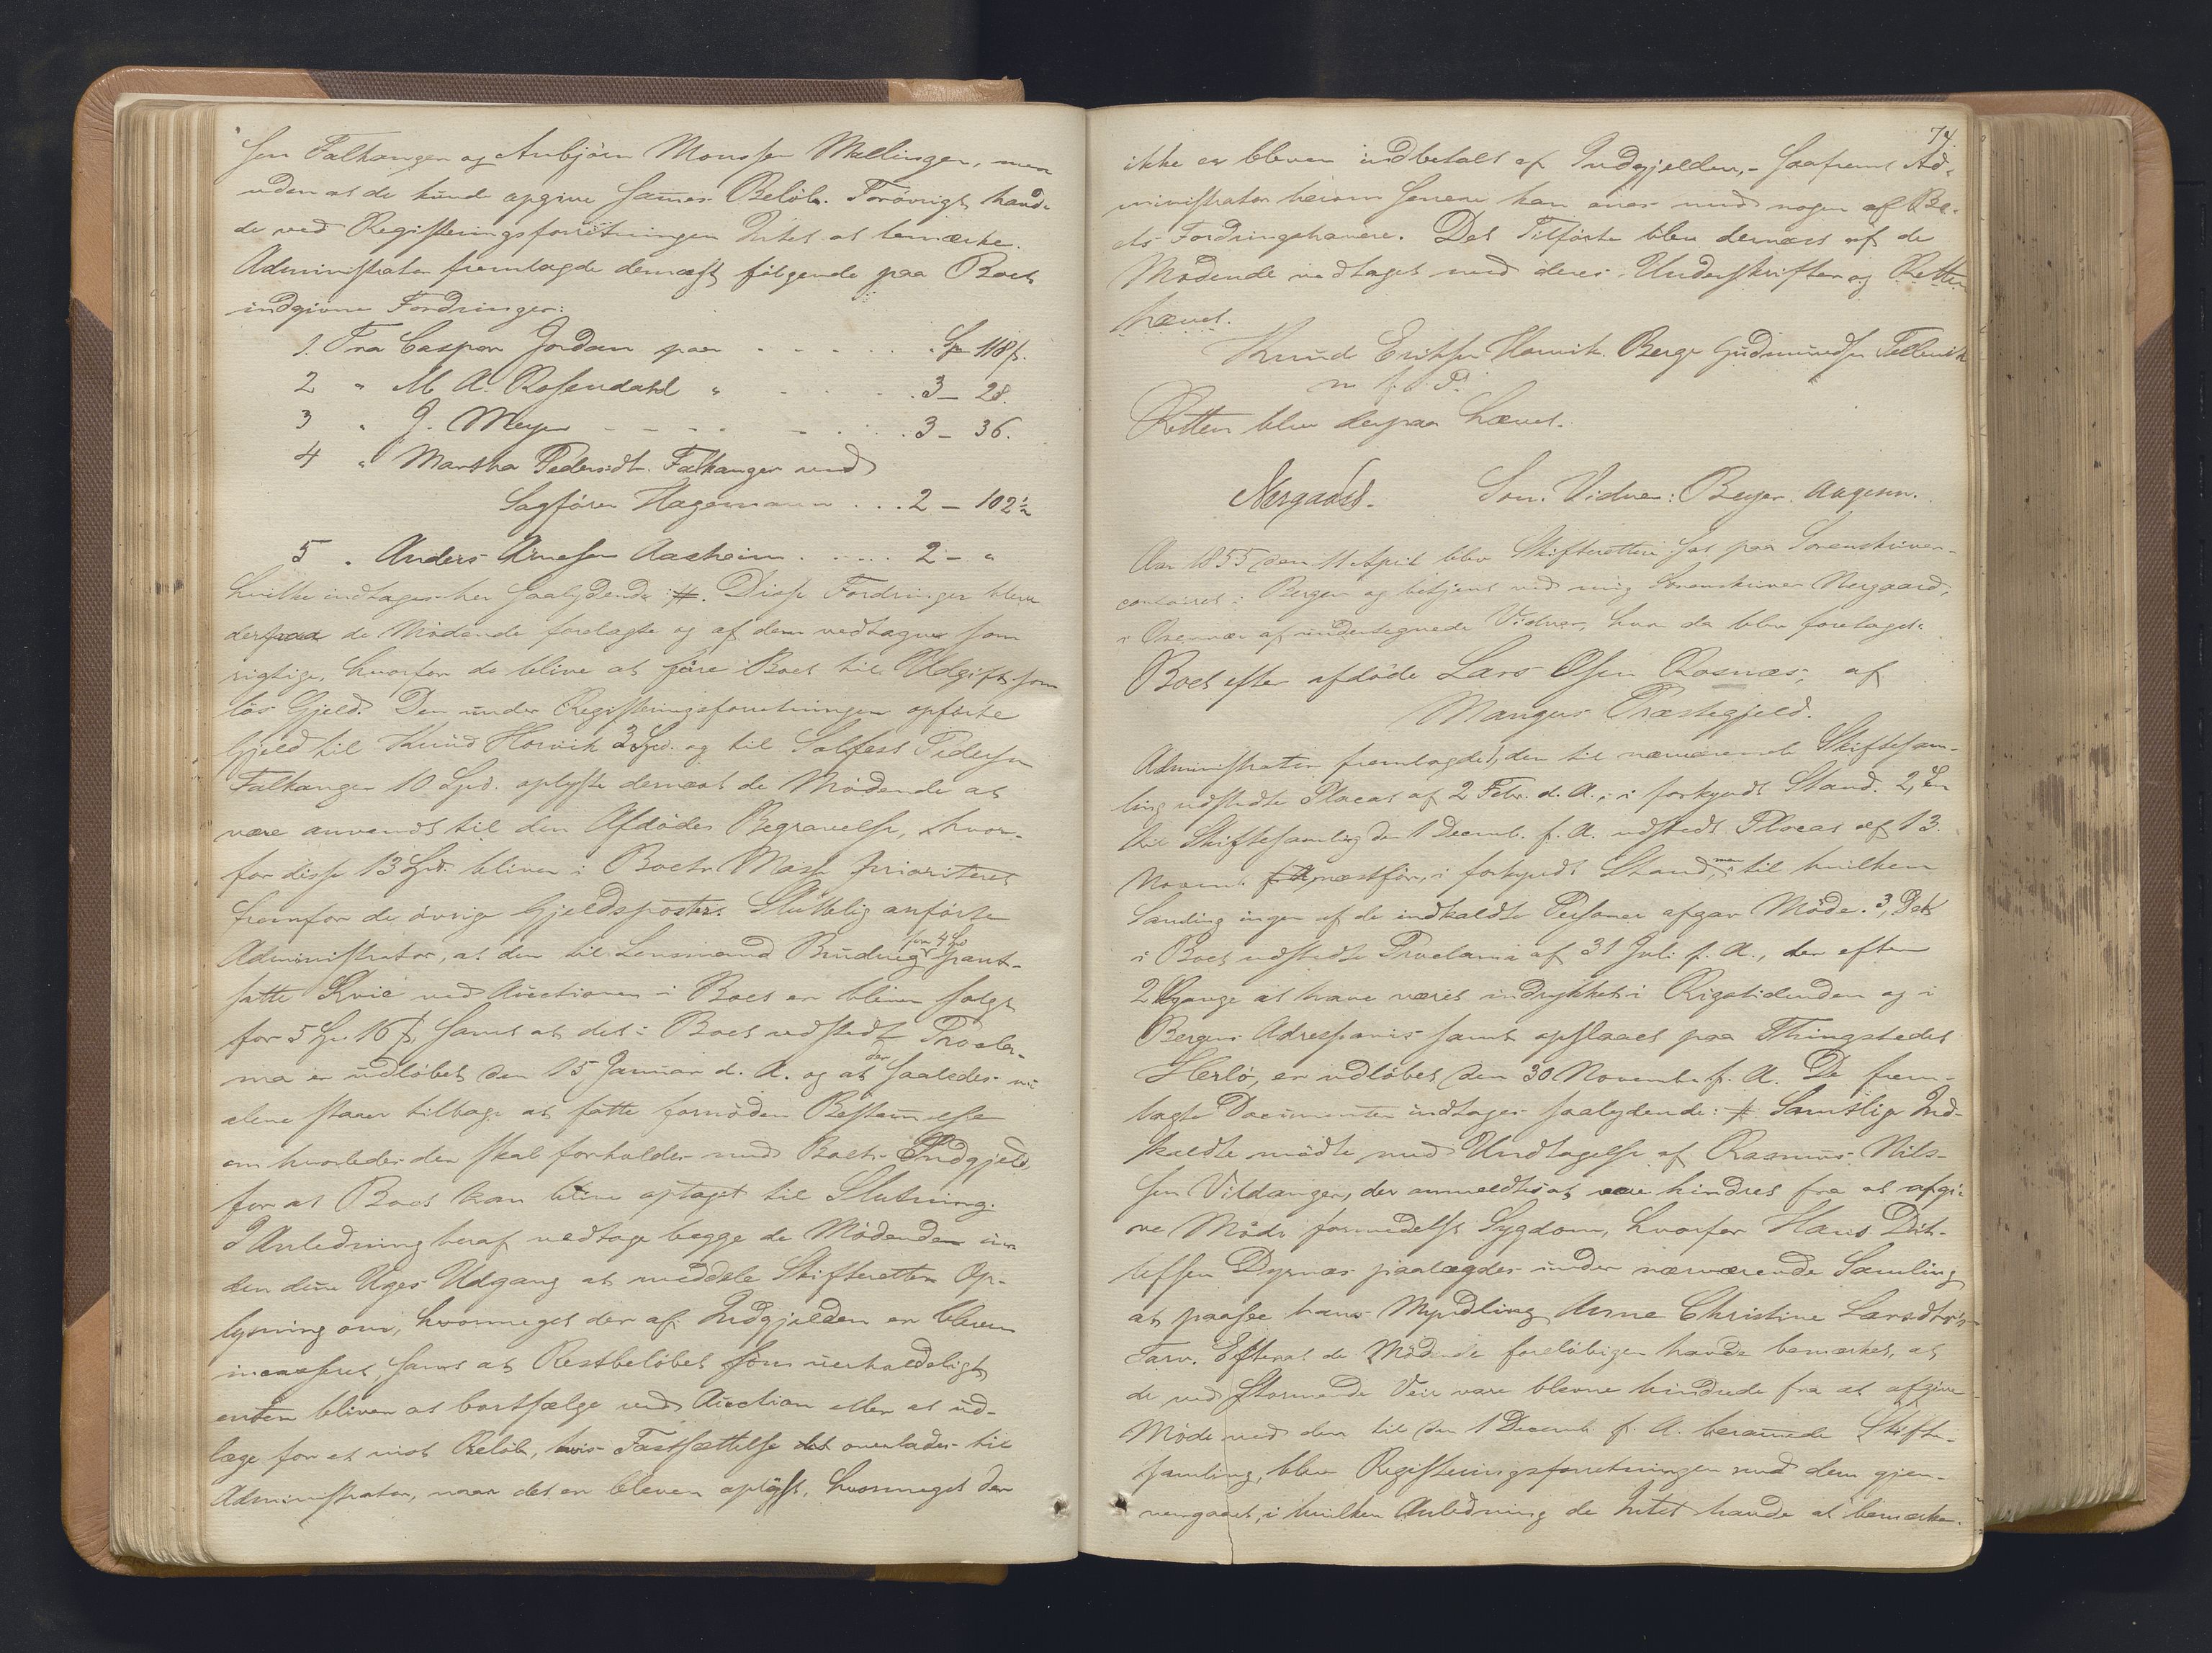 sen Falkanger og Anbjörn Monssen Mellingen, men
uden at de kunde opgive sammes Belöb. Forövrigt havd-
de ved Registreringsforretningen Intet at bemærke.
Administrator fremlagde dernæst fölgende paa Boet
indgivne Fordringer:
1. Fra Casper Jordan paa . . . . . Sp 118 s.
2 " M A. Rosendahl " . . . 3 – 28.
3 " J. Meyer – – – – . . . 3 – 36.
4 " Martha Pedersdt. Falkanger ved
Sagförer Hagemann . . . 2 – 102½
5 " Anders Arnesen Aasheim . . . . . 2 – "
hvilke indtages her saalydende: #. Disse Fordringer bleve
derpaa de Mödende forelagte og af dem vedtagne som
rigtige, hvorfor de blive at före Boet til Udgift som
lös Gjeld. Den under Registreringsforretningen opförte
Gjeld til Knud Horvik 3 Spd. og til Salfest Pedersen
Falkanger 10 Spd. oplyste dernæst de Mödende at
være anvendt til den Afdödes Begravelse, hvor-
for disse 13 Spd. bliver i Boets Masse prioriteret
fremfor de övrige Gjeldsposter. Sluttelig anförte
Administrator, at den til Lensmand Brudvig for 4 Spd pant-
satte Kvie ved Auctionen i Boet er bleven solgt
for 5 Sp. 16 s, samt at det i Boet udstedte Procla-
ma er udlöbet den 15 Januar d. A. og at der saaledes nu
alene staaer tilbage at fatte fornöden Bestemmelse
om hvorledes der skal forholdes med Boets Indgjeld
for at Boet kan blive optaget til Slutning.
I Anledning heraf vedtoge begge de Mödende in-
den denne Uges Udgang at meddele Skifteretten Op-
lysning om, hvormeget der af Indgjelden er bleven
incasseret, samt at Restbelöbet som uerholdeligt
enten bliver at bortsælge ved Auction eller at ud-
læge for et vist Belöb, hvis Fastsættelse det overlades til
Administrator, naar det er bleven oplyst, hvormeget der
74.
ikke er bleven indbetalt af Indgjelden, – saafremt Ad-
ministrator herom senere kan enes med nogen af Bo-
ets Fordringshavere. Det Tilförte blev dernæst af de
Mödende vedtaget med deres Underskrifter og Retten
hævet.
Knud Eriksen Horvik. Berge Gudmundsen Tellevik
m. f. P.
Retten blev derpaa hævet.
Nergaard. Som Vidner: Beyer. Aagesen.
Aar 1855 den 11 April blev Skifteretten sat paa Sorenskriver-
contoiret i Bergen og betjent ved mig Sorenskriver Nergaard,
i Overvær af undertegnede Vidner, hvor da blev foretaget
Boet efter afdöde Lars Olsen Rosnæs, af
Mangers Præstegjeld.
Administrator fremlagde 1, den til nærværende Skiftesam-
ling udstedte Placat af 2 Febr. d. A., i forkyndt Stand. 2, En
til Skiftesamling den 1 Decemb. f. A. udstedt Placat af 13
Novemb. næstför, i forkyndt Stand, men til hvilken
Samling ingen af de indkaldte Personer afgav Möde. 3, Det
i Boet udstedte Proclama af 31 Juli f. A., der efter
2 Gange at have været indrykket i Rigstidenden og i
Bergens Adressavis samt opslaaet paa Thingstedet
Herlö, er udlöbet den 30 Novemb. f. A. De frem-
lagte Documenter indtages saalydende: # Samtlige Ind-
kaldte mödte med Undtagelse af Rasmus Nils-
sen Vildanger, der anmeldtes at være hindret fra at afgi-
ve Möde formedelst Sygdom, hvorfor Hans Dit-
lefsen Dyrnæs paalagdes under nærværende Samling
at paasee hans Myndling Anne Christine Larsdtr's
Tarv. Efterat de Mödende forelöbigen havde bemærket, at
de ved stormende Veir vare blevne hindrede fra at afgive
Möde ved den til den 1 Decemb. f. A. berammede Skifte-
samling, blev Registreringsforretningen med dem gjen-
nemgaaet, i hvilken Anledning de Intet havde at bemærke.